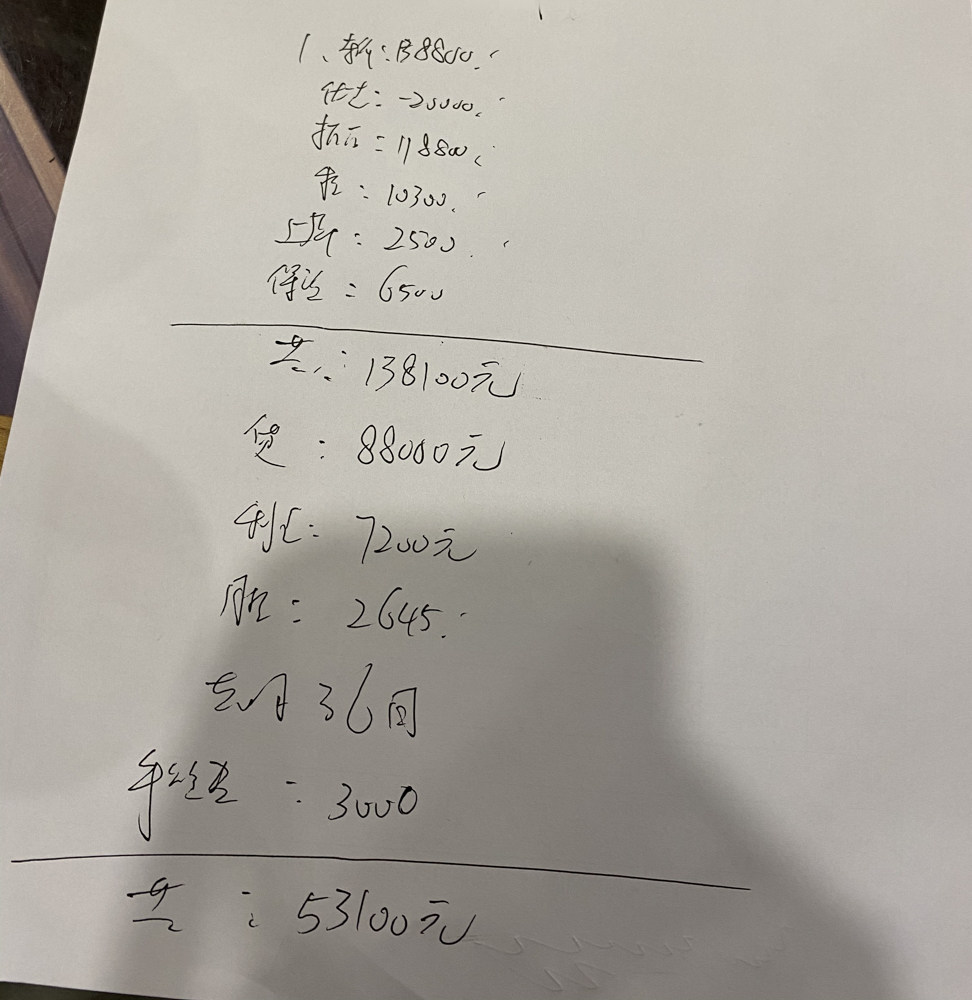 1、车价:138800.
优惠:-20000.
折后:118800.
税:10300.
上牌:2500.
保险:6500
共:138100元
贷:88000元
利息:7200元
月供:2645.
36
手续费:3000
共:53100元